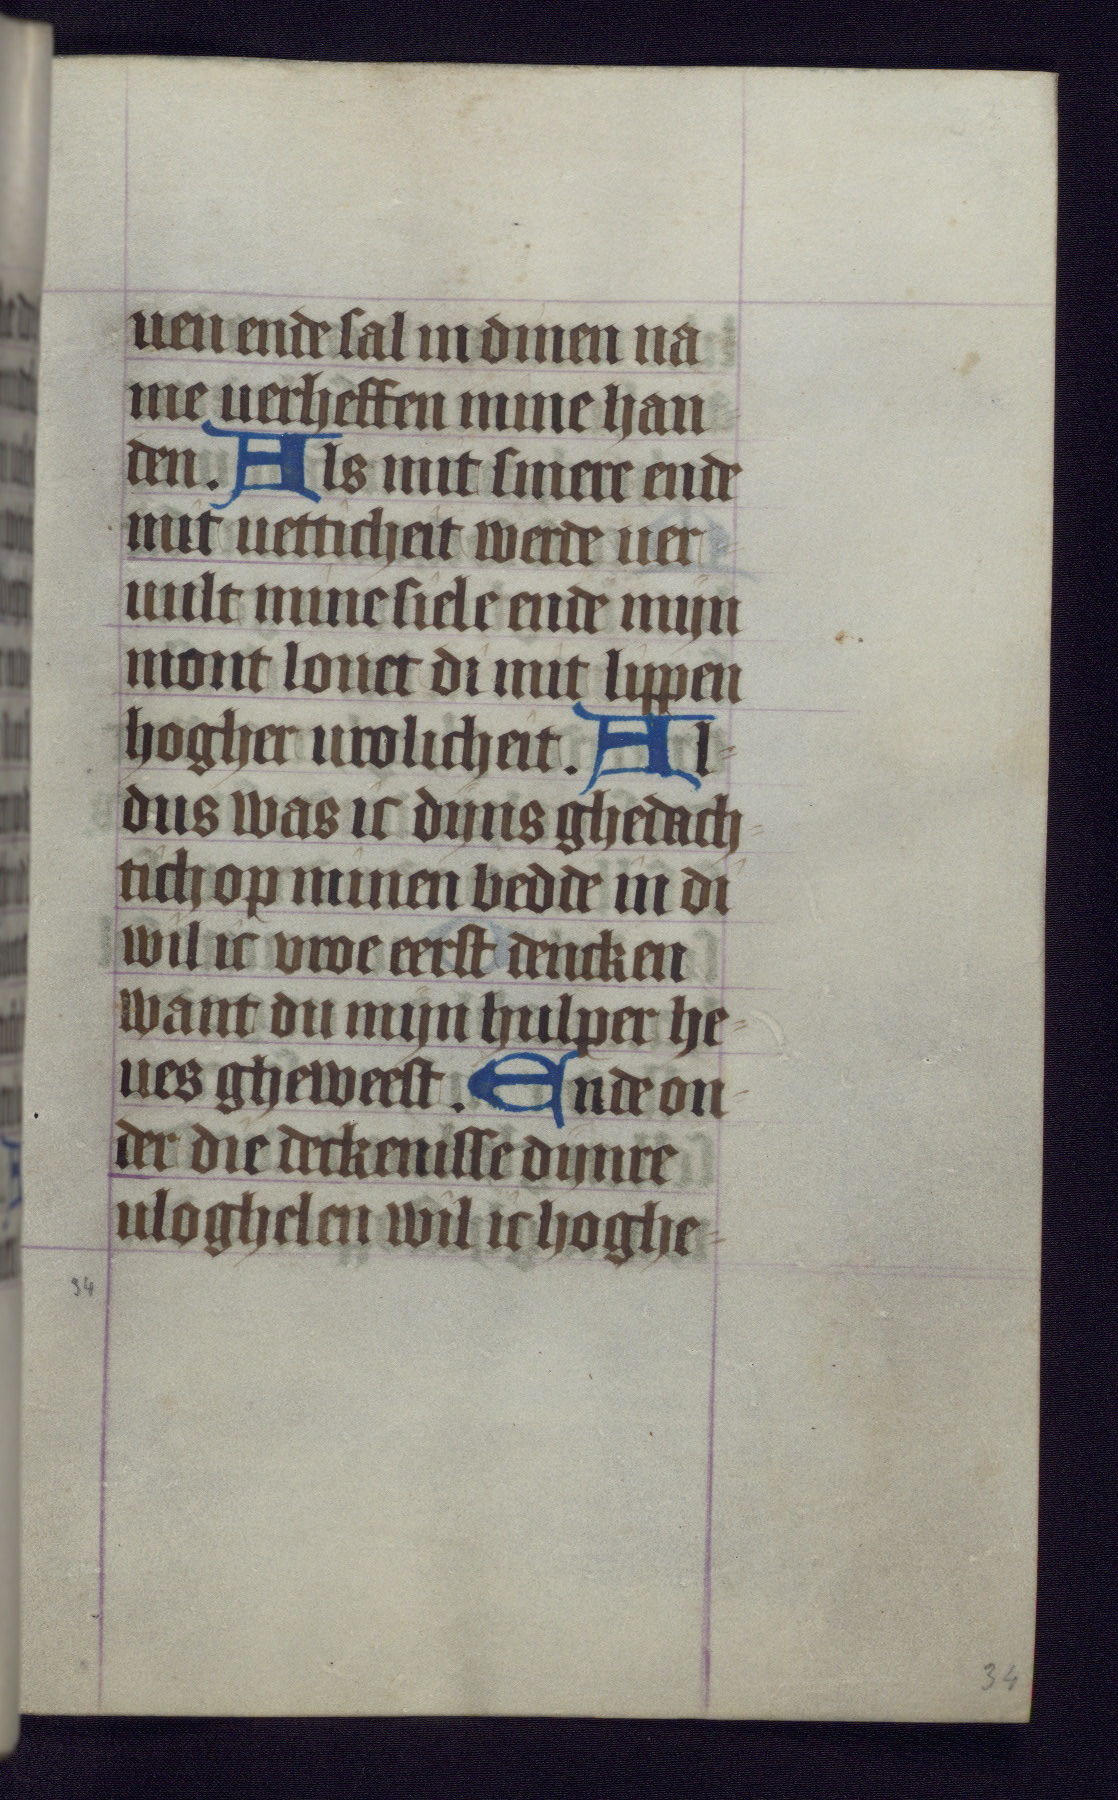 uen ende sal in dinen na
me uerheffen mine han
den. Als mit smere ende
mit uetticheit werde uer
uult mine siele ende mijn
mont louet di mit lippen
hogher urolicheit. Al-
dus was ic dijns ghedach-
tich op minen bedde in di
wil ic vroe eerst dencken
want du mijn hulper he-
ues gheweest. Ende on-
der die deckenisse dijnre
uloghelen wil ic hoghe-
34
34